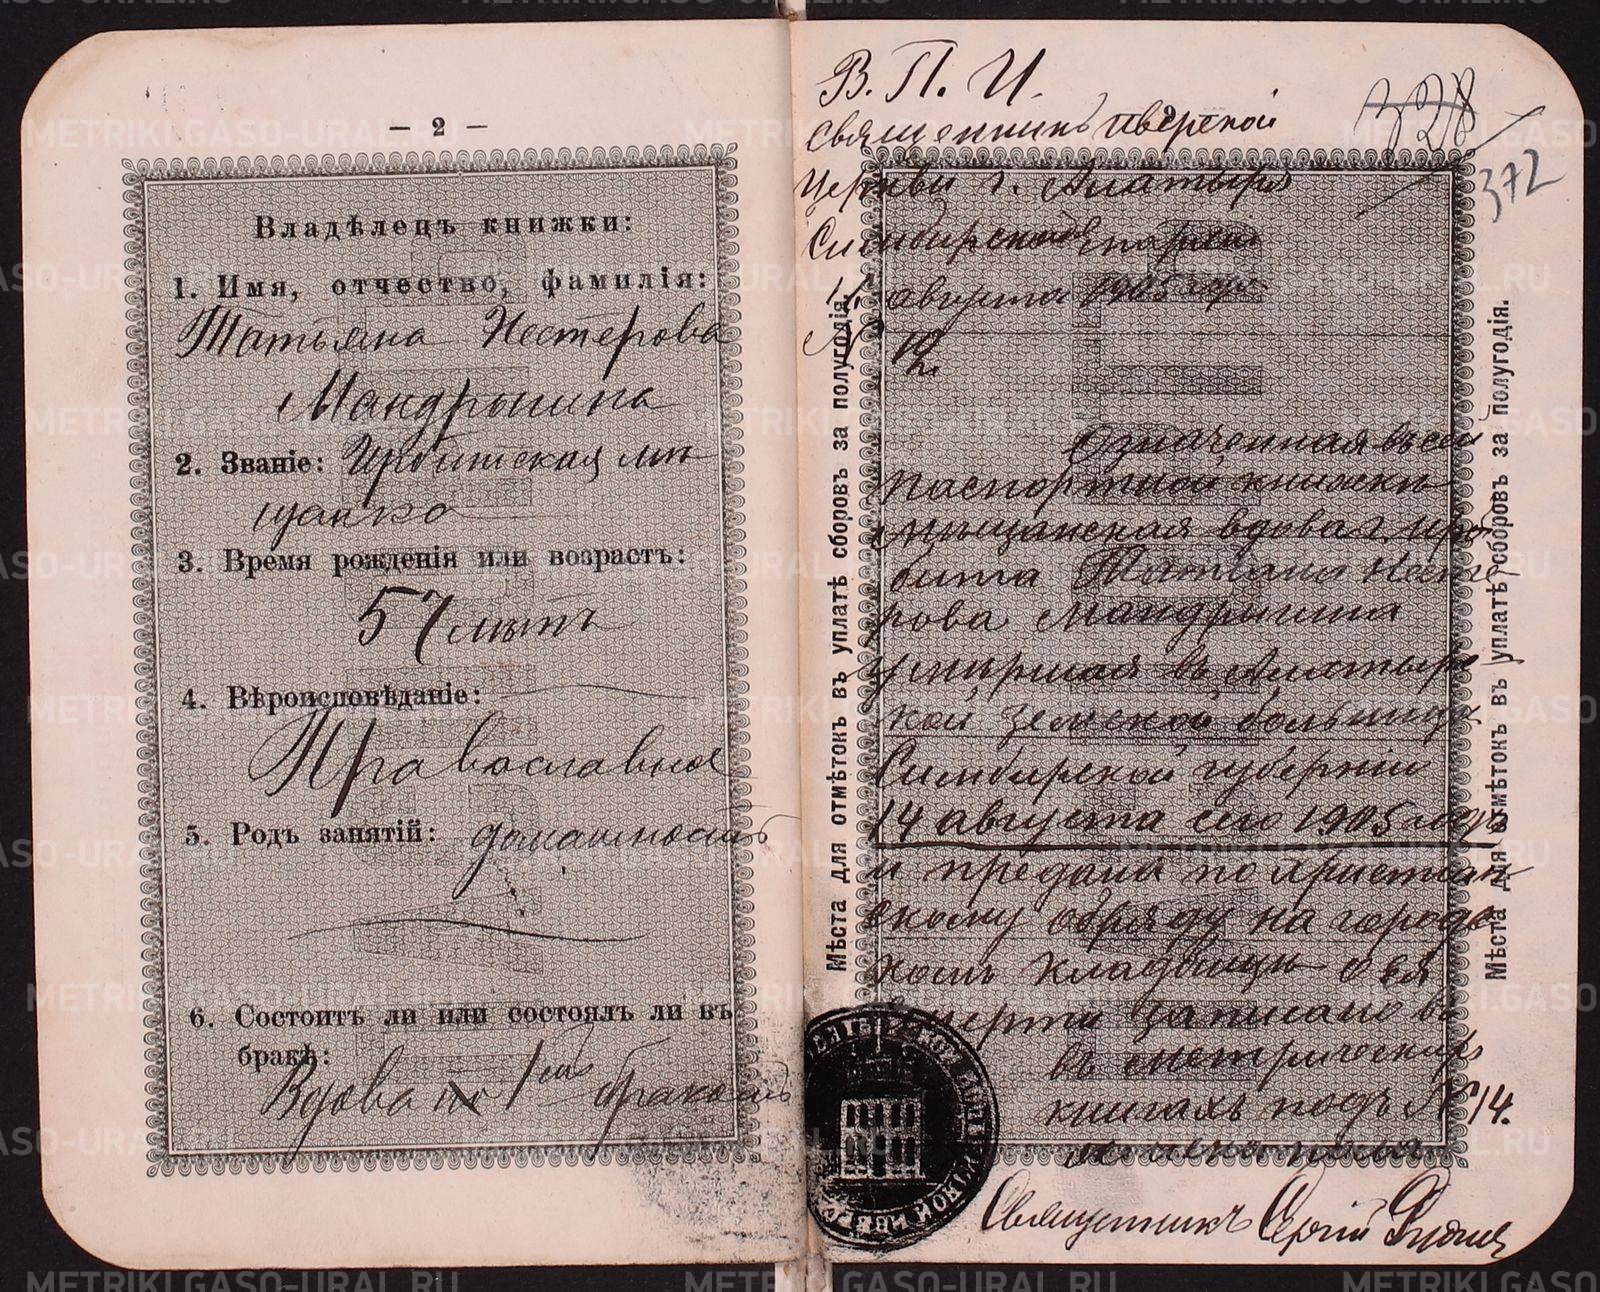 — 2 —
Владѣлецъ книжки:
1. Имя, отчество, фамилія:
Татьяна Нестерова
Мандрыгина
2. Званіе: Ирбитская мѣ
щанка
3. Время рожденія или возрастъ:
57 лѣтъ
4. Вѣроисповѣданіе:
Православное
5. Родъ занятій: домашность
6. Состоитъ ли или состоялъ ли въ
бракѣ:
Вдова по 1ᵐᵘ бракомъ
В. П. И.
Священникъ Иверской
328
церкви г. Алатыря
372
Симбирской епархіи
августа 1905 года
№ 12.
Означенная въ сей
паспортной книжкѣ
мѣщанская вдова г. Ир
бита Татьяна Несте
рова Мандрыгина
умершая въ Алатырс
кой земской больницѣ
Симбирской губерніи
14 августа сего 1905 года
и предана по христіан
скому обряду на городс
комъ кладбищѣ о ея
смерти записано въ
въ метрическихъ
книгахъ подъ № 14.
Священникъ Сергій
Мѣста для отмѣтокъ въ уплатѣ сборовъ за полугодія.
Мѣста для отмѣтокъ въ уплатѣ сборовъ за полугодія.
METRIKI.GASO-URAL.RU